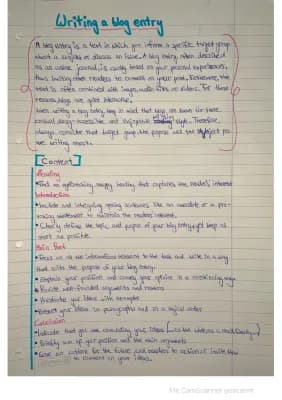 Writing a blog entry
A blog entry is a text in which you inform a specific target group
about a subject or discuss an issue. A blog entry, often described
as an online journal, is usually based on your personal experiences,
thus inviting other readers to comment on your post. Furthermore, the
text is often combined with images, audio files or videos. For these
reasons, blogs are quite interactive.
When writing a blog entry, keep in mind that blogs are known for their
casual and subjective style. Therefore,
always consider the target group, the purpose and the subject you
are writing about.
Content
Heading
• Find an eye-catching, snappy heading that captures the reader's interest
Introduction
• Include and intriguing opening sentence, like an anecdote or a pro-
voking statement to maintain the reader's interest.
• Clearly define the topic and purpose of your blog entry, yet keep it
short as possible
Main Part
• Focus on the information relevant to the task and write in a way
that suits the purpose of your blog entry.
• Explain your position and convey your opinion in a convincing way
• Provide well-founded arguments and reasons
• Illustrate your ideas with examples
• Present your ideas in paragraphs and in a logical order
Conclusion
• Indicate that you are concluding your ideas
• Briefly sum up your position and the main arguments
• Give an outlook for the future, call readers to action or invite them
to comment on your ideas.